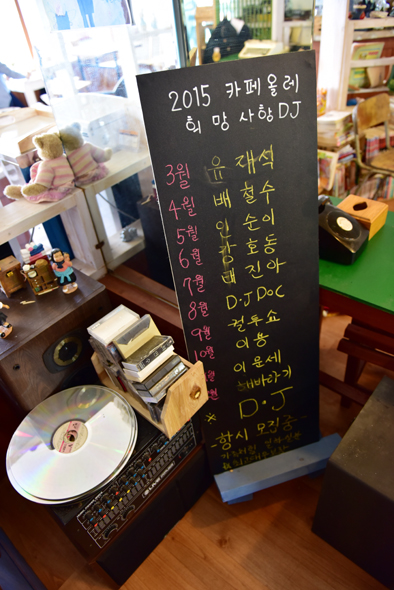 2015 카페올레
희망사항DJ
3월 유재석
4월 배철수
5월 인순이
6월 강호동
7월 태진아
8월 D.J DOC
9월 컬투쇼
10월 이용
월 이문세
월 해바라기
* D.J
-항시 모집중-